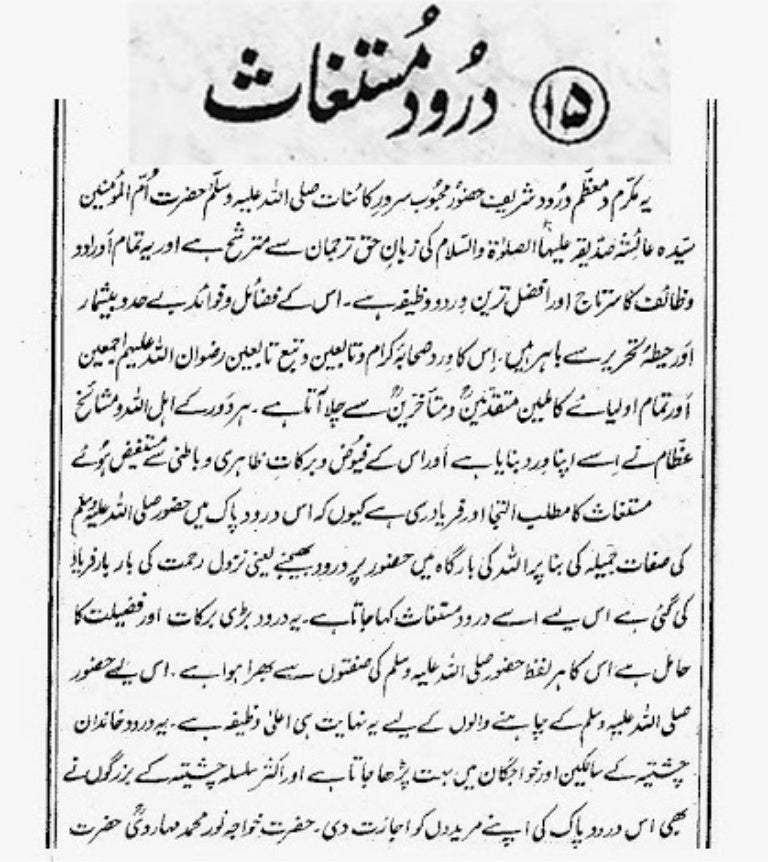 ۱۵ درُود مُستغاث
یہ مکرّم و معظّم درُود شریف حضور محبُوب سرورِ کائنات صلی اللہ علیہ وسلّم حضرت اُمّ المؤمنین
سیّدہ عائشہ صدّیقہ علیہا الصلوٰۃ والسّلام کی زبانِ حق ترجمان سے مترشح ہے اور یہ تمام اَوراد و
وظائف کا سرتاج اور افضل ترین وردو وظیفہ ہے۔ اس کے فضائل و فوائد بے حد و بیشمار
اَور حیطۂ تحریر سے باہر ہیں۔ اِس کا وِرد صحابۂ کرام و تابعین و تبع تابعین رضوان اللہ علیہم اجمعین
اَور تمام اولیائے کاملین متقدّمینؒ و متأخرینؒ سے چلا آتا ہے۔ ہر دَور کے اہل اللہ و مشائخ
عظّام نے اِسے اپنا وِرد بنایا ہے اَور اس کے فیُوض و برکاتِ ظاہری و باطنی سے مستفیض ہُوئے
مستغاث کا مطلب التجا اور فریادری ہے کیوں کہ اس درود پاک میں حضور صلی اللہ علیہ وسلم
کی صفات جمیلہ کی بنا پر اللہ کی بارگاہ میں حضور پر درود بھیجنے یعنی نزول رحمت کی بار بار فریاد
کی گئی ہے اس لیے اسے درود مستغاث کہا جاتا ہے۔ یہ درود بڑی برکات اور فضیلت کا
حامل ہے اس کا ہر لفظ حضور صلی اللہ علیہ وسلم کی صفتوں سے بھرا ہوا ہے۔ اس لیے حضور
صلی اللہ علیہ وسلم کے چاہنے والوں کے لیے یہ نہایت ہی اعلیٰ وظیفہ ہے۔ یہ درود خاندان
چشتیہ کے سالکین اور خواجگان میں بہت پڑھا جاتا ہے اور اکثر سلسلہ چشتیہ کے بزرگوں نے
بھی اس درود پاک کی اپنے مریدوں کو اجازت دی۔ حضرت خواجہ نور محمد مہارویؒ حضرت